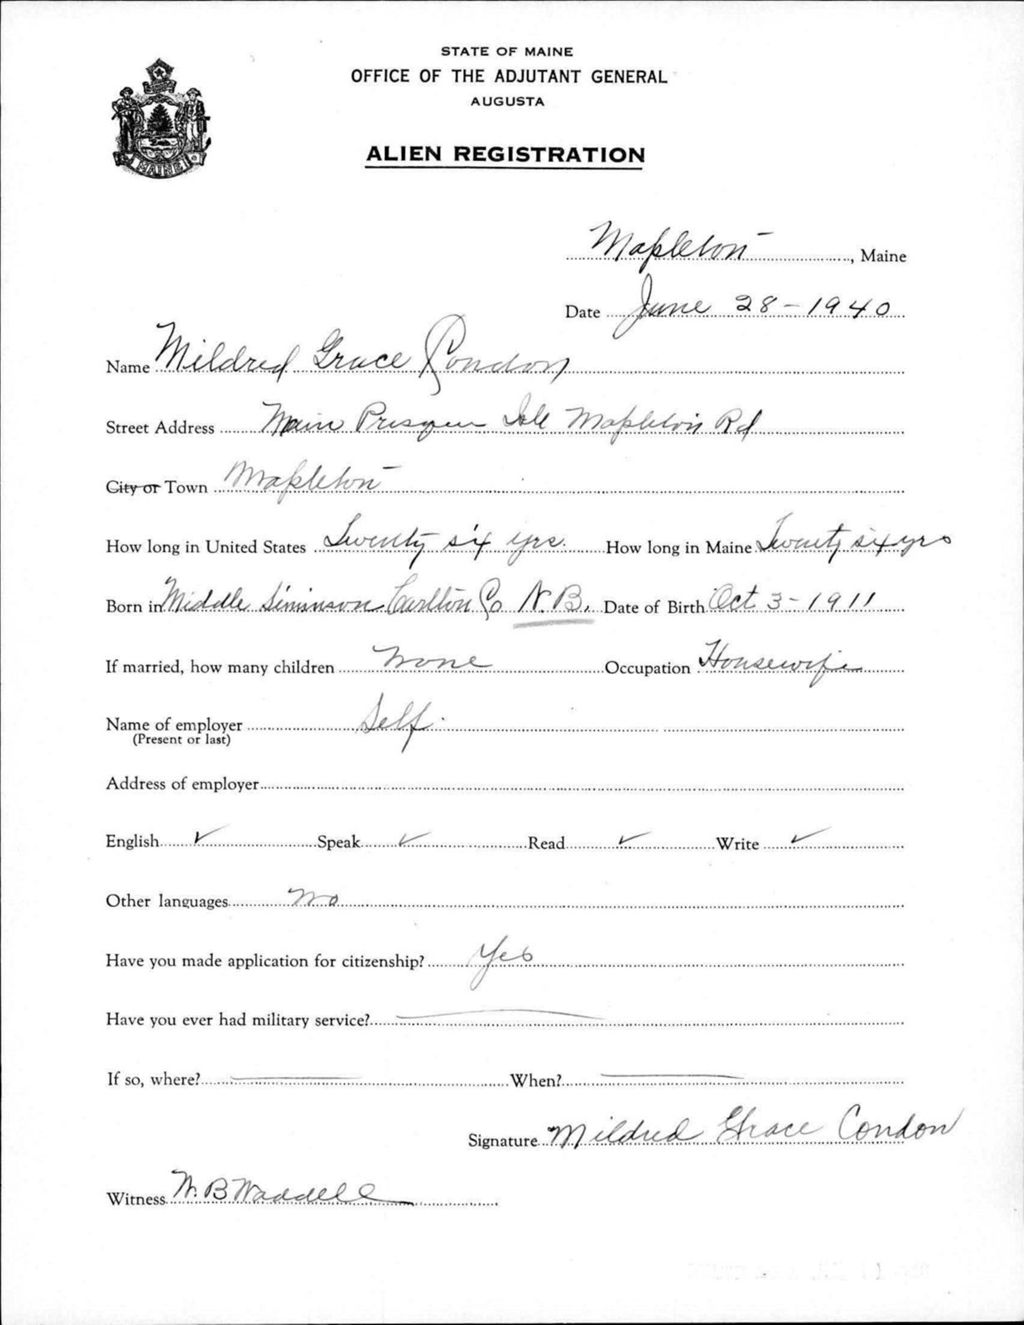 STATE OF MAINE
OFFICE OF THE ADJUTANT GENERAL
AUGUSTA
ALIEN REGISTRATION
MAINE
Mapleton, Maine
Date June 28-1940
Name Mildred Grace Condon
Street Address Main Presque Isle Mapleton Rd
City or Town Mapleton
How long in United States Twenty six yrs. How long in Maine Twenty six yrs
Born in Middle Siminson Carlton Co N.B. Date of Birth Oct 3-1911
If married, how many children None Occupation Housewife
Name of employer Self.
(Present or last)
Address of employer
English ✓ Speak ✓ Read ✓ Write ✓
Other languages No
Have you made application for citizenship? Yes
Have you ever had military service? —
If so, where? — When? —
Signature Mildred Grace Condon
Witness W. B Waddell